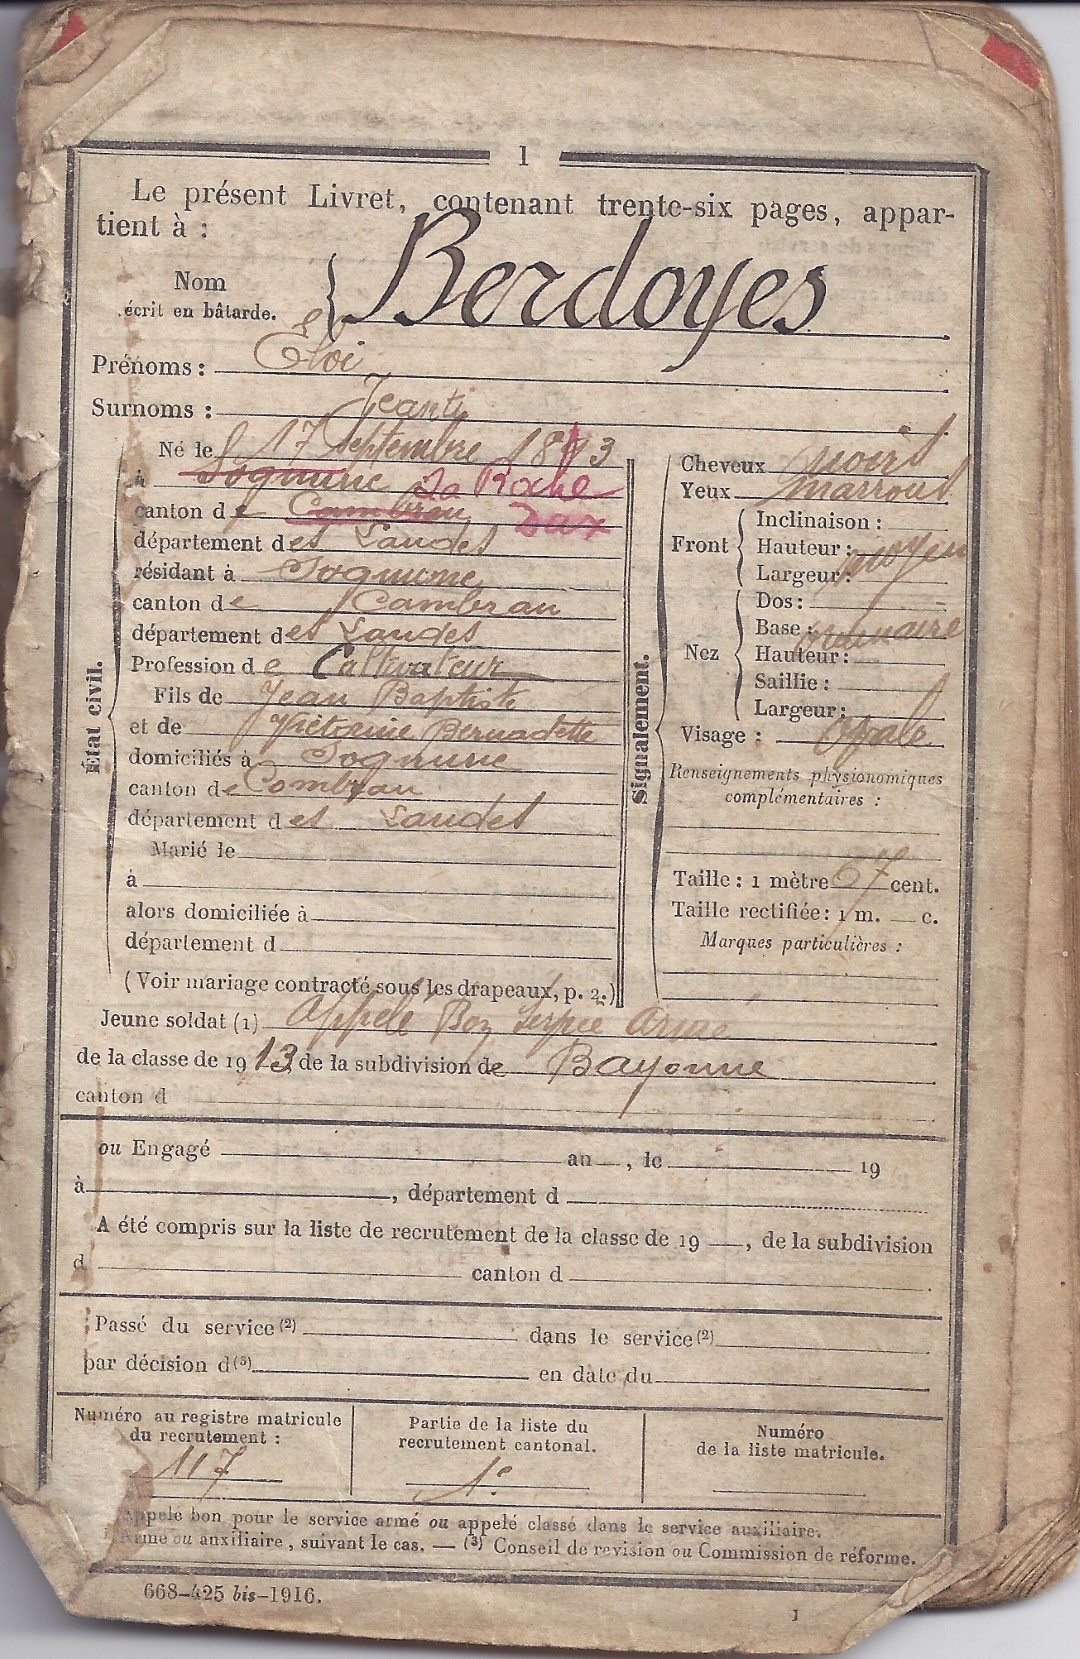 1
Le présent Livret, contenant trente-six pages, appar-
tient à :
Nom
écrit en bâtarde.
Berdoyes
Prénoms : Eloi
Surnoms : Jeanti
Né le 17 Septembre 1893
à Sognune La Roche
canton de Cambran Dax
département des Landes
résidant à Sognune
canton de Cambran
département des Landes
Profession de Cultivateur
Fils de Jean Baptiste
et de Victorine Bernadette
domiciliés à Sognune
canton de Combran
département des Landes
Marié le
à
alors domiciliée à
département d
(Voir mariage contracté sous les drapeaux, p. 2.)
État civil.
Signalement.
Cheveux noirs
Yeux marrons
Front
Inclinaison :
Hauteur : moyen
Largeur :
Nez
Dos :
Base : ordinaire
Hauteur :
Saillie :
Largeur :
Visage : Ovale
Renseignements physionomiques
complémentaires :
Taille : 1 mètre 67 cent.
Taille rectifiée : 1 m. c.
Marques particulières :
Jeune soldat (1) Appelé Bon Armé
de la classe de 1913 de la subdivision de Bayonne
canton d
ou Engagé an , le 19
à , département d
A été compris sur la liste de recrutement de la classe de 19 , de la subdivision
d canton d
Passé du service (2) dans le service (2)
par décision d (3) en date du
Numéro au registre matricule
du recrutement :
117
Partie de la liste du
recrutement cantonal.
1e
Numéro
de la liste matricule.
Appelé bon pour le service armé ou appelé classé dans le service auxiliaire.
Armé ou auxiliaire, suivant le cas. — (3) Conseil de revision ou Commission de réforme.
668-425 bis-1916.
1